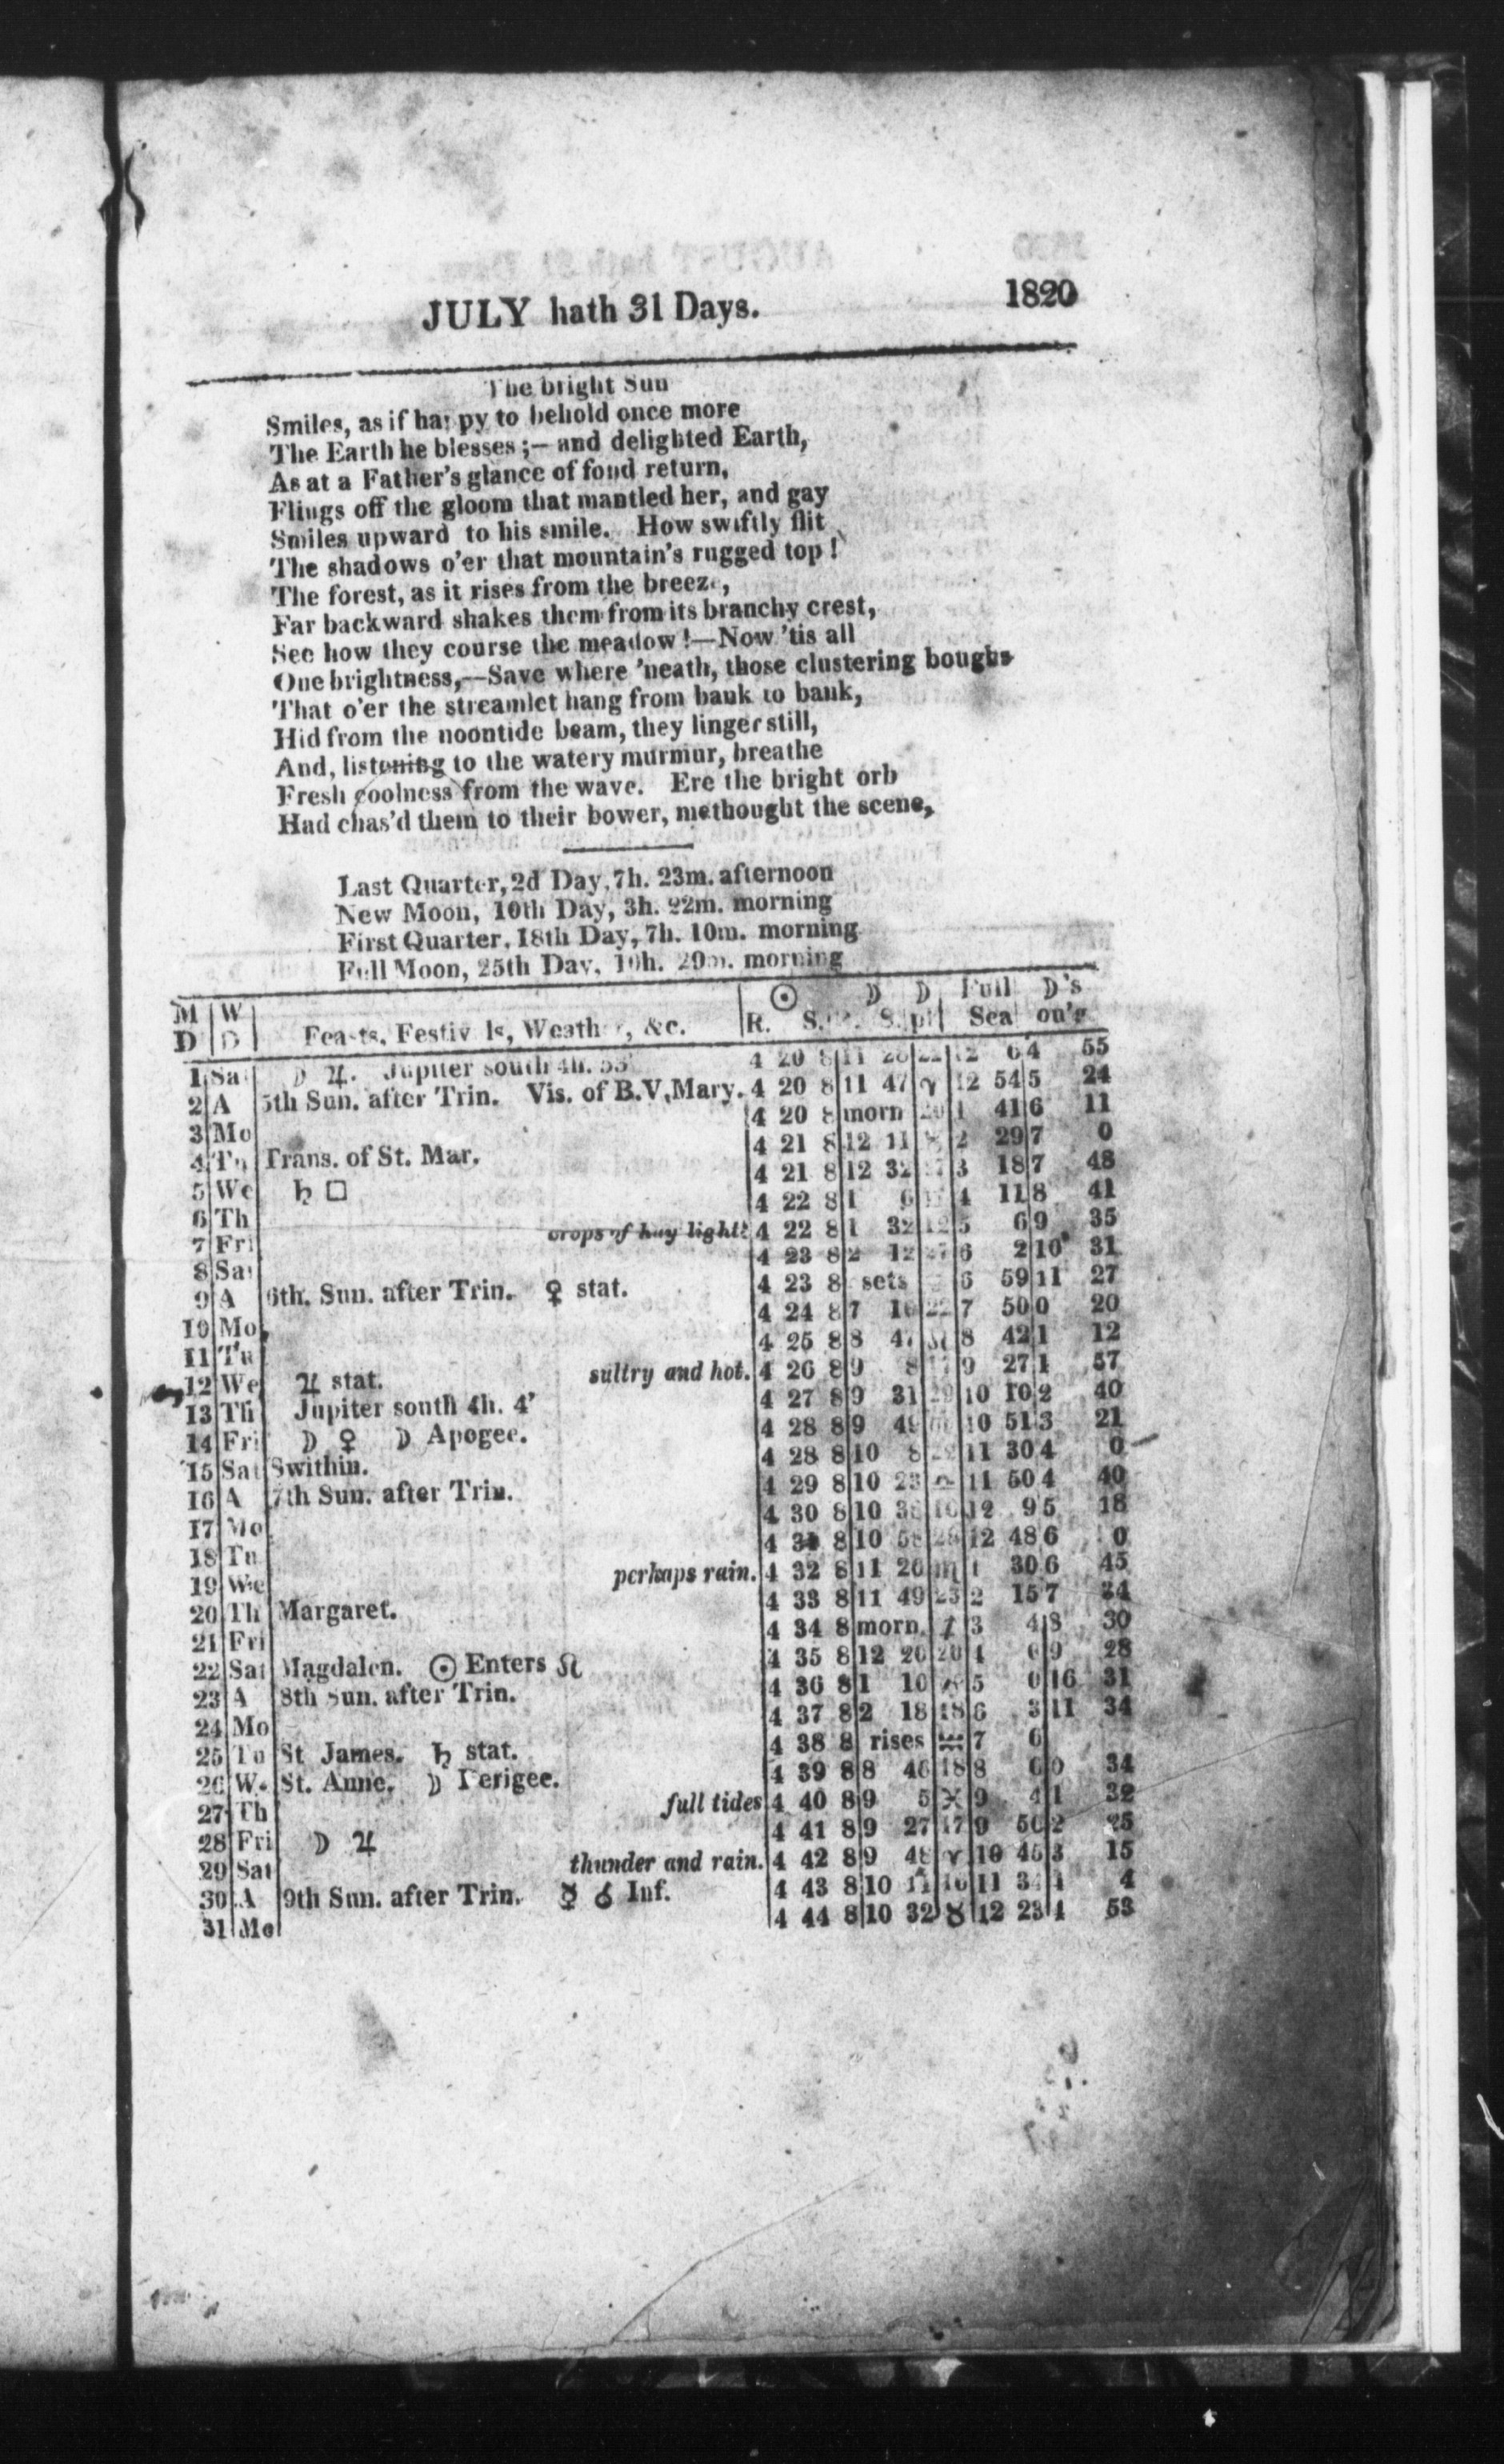 JULY hath 31 Days. 1820
The bright Sun
Smiles, as if happy to behold once more
The Earth he blesses;— and delighted Earth,
As at a Father's glance of fond return,
Flings off the gloom that mantled her, and gay
Smiles upward to his smile. How swiftly flit
The shadows o'er that mountain's rugged top!
The forest, as it rises from the breeze,
Far backward shakes them from its branchy crest,
See how they course the meadow!—Now 'tis all
One brightness,—Save where 'neath, those clustering boughs
That o'er the streamlet hang from bank to bank,
Hid from the noontide beam, they linger still,
And, listening to the watery murmur, breathe
Fresh coolness from the wave. Ere the bright orb
Had chas'd them to their bower, methought the scene,
Last Quarter, 2d Day, 7h. 23m. afternoon
New Moon, 10th Day, 3h. 22m. morning
First Quarter, 18th Day, 7h. 10m. morning
Full Moon, 25th Day, 10h. 20m. morning
M W ☉ ☽ ☽ Full ☽'s
D D Feasts, Festivals, Weather, &c. R. S. S. pl Sea on'g
1 Sat ☽ ♃. Jupiter south 4h. 53' 4 20 8 11 12 6 4 55
2 A 5th Sun. after Trin. Vis. of B.V. Mary. 4 20 8 11 47 ♈ 12 54 5 24
3 Mo 4 20 8 morn 1 41 6 11
4 Tu Trans. of St. Mar. 4 21 8 12 11 ♉ 2 29 7 0
5 We ♄ □ 4 21 8 12 32 3 18 7 48
6 Th 4 22 8 1 4 11 8 41
7 Fri crops of hay light! 4 22 8 1 32 12 5 6 9 35
8 Sat 4 23 8 2 12 27 6 2 10 31
9 A 6th. Sun. after Trin. ♀ stat. 4 23 8 sets 6 59 11 27
10 Mo 4 24 8 7 22 7 50 0 20
11 Tu 4 25 8 8 47 ♌ 8 42 1 12
12 We ♃ stat. sultry and hot. 4 26 8 9 8 17 9 27 1 57
13 Th Jupiter south 4h. 4' 4 27 8 9 31 29 10 10 2 40
14 Fri ☽ ♀ ☽ Apogee. 4 28 8 9 49 10 51 3 21
15 Sat Swithin. 4 28 8 10 8 11 30 4 0
16 A 7th Sun. after Trin. 4 29 8 10 23 ♎ 11 50 4 40
17 Mo 4 30 8 10 16 12 9 5 18
18 Tu 4 31 8 10 28 12 48 6 0
19 We perhaps rain. 4 32 8 11 20 ♏ 1 30 6 45
20 Th Margaret. 4 33 8 11 49 23 2 15 7 34
21 Fri 4 34 8 morn. ♐ 3 4 8 30
22 Sat Magdalen. ☉ Enters ♌ 4 35 8 12 20 20 4 0 9 28
23 A 8th Sun. after Trin. 4 36 8 1 10 ♑ 5 0 10 31
24 Mo 4 37 8 2 18 18 6 3 11 34
25 Tu St James. ♄ stat. 4 38 8 rises ♒ 7 6
26 We St. Anne. ☽ Perigee. 4 39 8 8 46 18 8 6 0 34
27 Th full tides 4 40 8 9 5 ♓ 9 4 1 32
28 Fri ☽ ♃ 4 41 8 9 27 17 9 56 2 25
29 Sat thunder and rain. 4 42 8 9 48 ♈ 10 45 3 15
30 A 9th Sun. after Trin. ☿ ☌ Inf. 4 43 8 10 11 16 11 34 4 4
31 Mo 4 44 8 10 32 ♉ 12 23 4 53